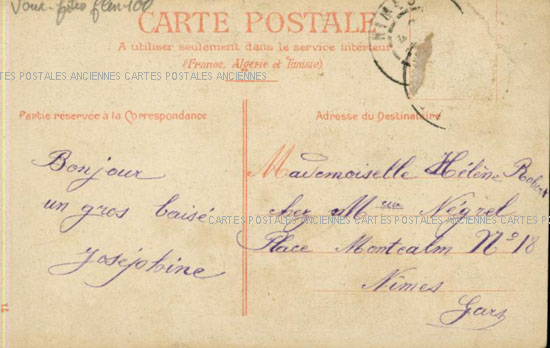 CARTE POSTALE
A utiliser seulement dans le service intérieur
(France, Algérie et Tunisie)
NIMES
CARTES POSTALES ANCIENNES CARTES POSTALES ANCIENNES CARTES POSTALES ANCIENNES CARTES POSTALES ANCIENNES
Partie réservée à la Correspondance
Bonjour
un gros baisé
Joséphine
Adresse du Destinataire
Mademoiselle Hélène
chez Mme Négrel
CARTES POSTALES ANCIENNES CARTES POSTALES ANCIENNES CARTES POSTALES ANCIENNES
Place Montcalm No 18
Nimes
Gard